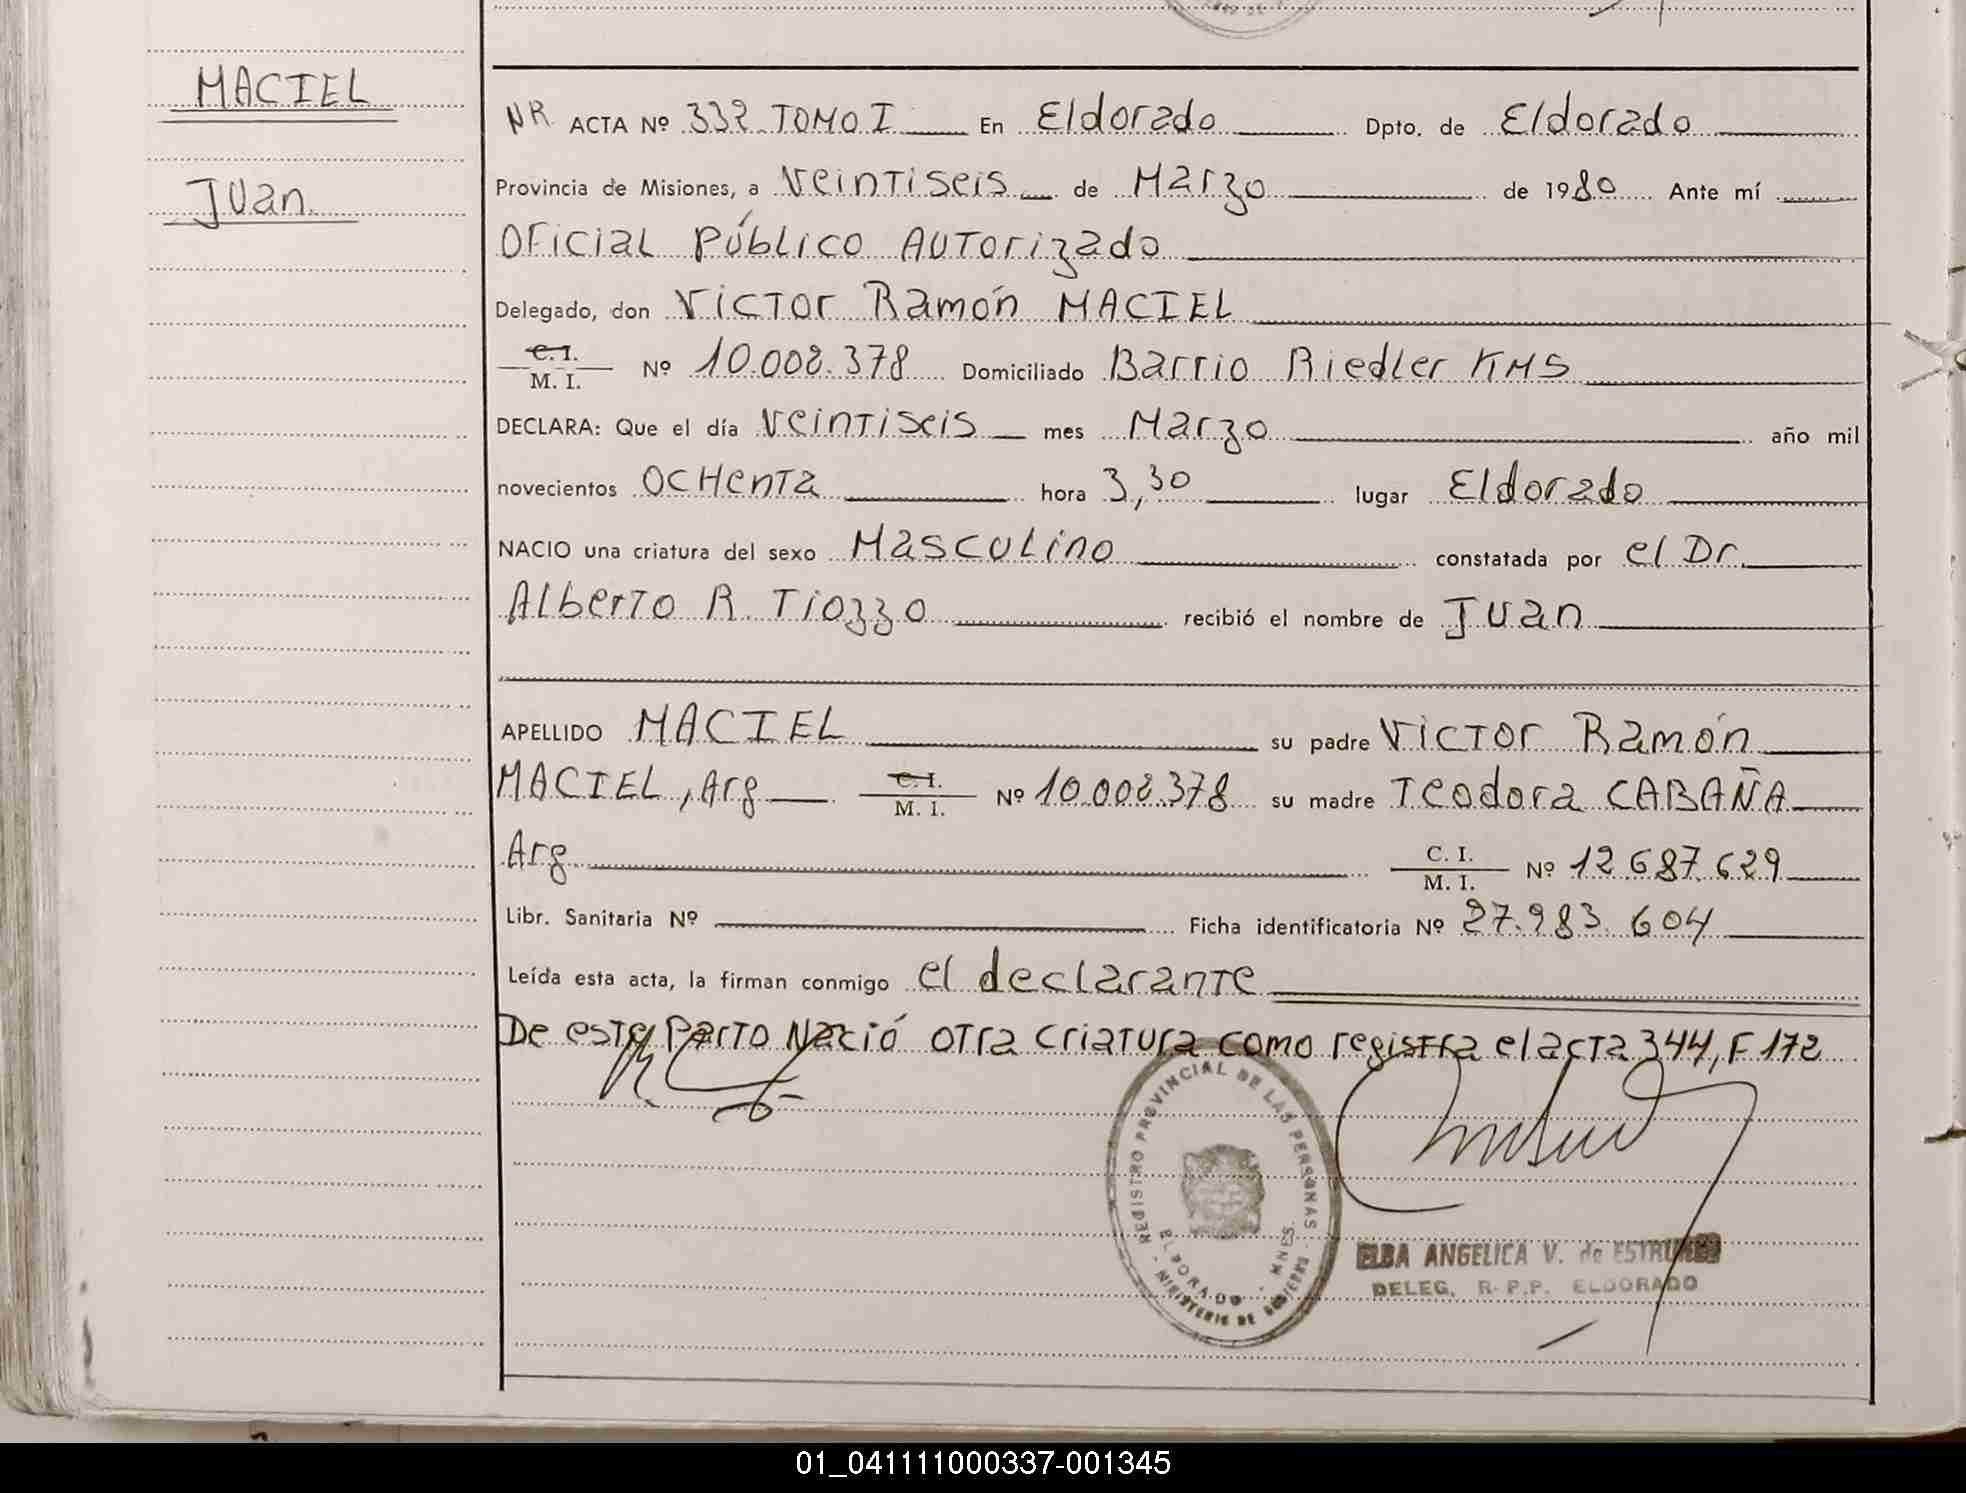 MACIEL
Juan
NR ACTA Nº 332 TOMO I En Eldorado Dpto. de Eldorado
Provincia de Misiones, a veintiseis de Marzo de 1980 Ante mí
Oficial Público Autorizado
Delegado, don Victor Ramón MACIEL
C. I. / M. I. Nº 10.002.378 Domiciliado Barrio Riedler KM5
DECLARA: Que el día veintiseis mes Marzo año mil
novecientos ochenta hora 3,30 lugar Eldorado
NACIO una criatura del sexo Masculino constatada por el Dr.
Alberto R. Tiozzo recibió el nombre de Juan
APELLIDO MACIEL su padre Victor Ramón
MACIEL, Arg C. I. / M. I. Nº 10.002.378 su madre Teodora CABAÑA
Arg C. I. / M. I. Nº 12687.629
Libr. Sanitaria Nº Ficha identificatoria Nº 27.983.604
Leída esta acta, la firman conmigo el declarante
De este Parto Nació otra criatura como registra el acta 344, F 172
REGISTRO PROVINCIAL DE LAS PERSONAS
ELDORADO - MNES.
- MINISTERIO DE GOBIERNO -
ELBA ANGELICA V. de
DELEG. R.P.P. ELDORADO
01_041111000337-001345